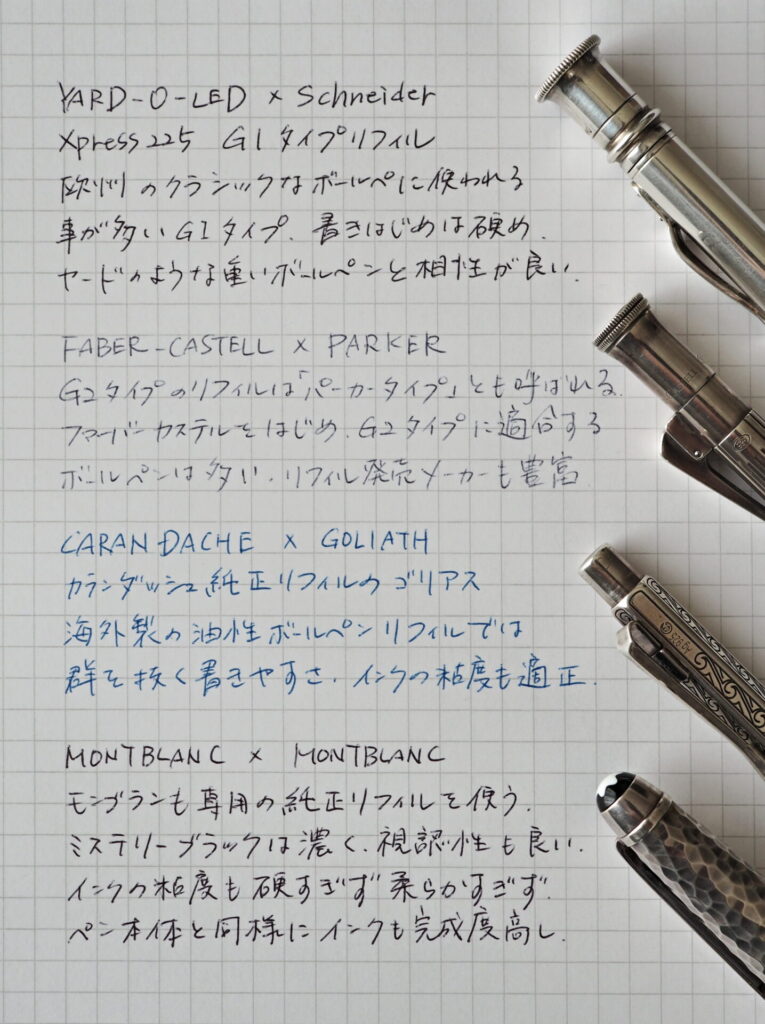 YARD-O-LED × Schneider
Xpress 225 G1タイプリフィル
欧州のクラシックなボールペに使われる
事が多いG1タイプ、書きはじめは硬め、
ヤードのような重いボールペンと相性が良い.
FABER-CASTELL × PARKER
G2タイプのリフィルは「パーカータイプ」とも呼ばれる.
ファーバーカステルをはじめ、G2タイプに適合する
ボールペンは多い、リフィル発売メーカーも豊富.
CARAN DACHE × GOLIATH
カランダッシュ純正リフィルのゴリアス
海外製の油性ボールペンリフィルでは
群を抜く書きやすさ、インクの粘度も適正.
MONTBLANC × MONTBLANC
モンブランも専用の純正リフィルを使う.
ミステリーブラックは濃く、視認性も良い.
インクの粘度も硬すぎず柔らかすぎず.
ペン本体と同様にインクも完成度高し.
Ag 925